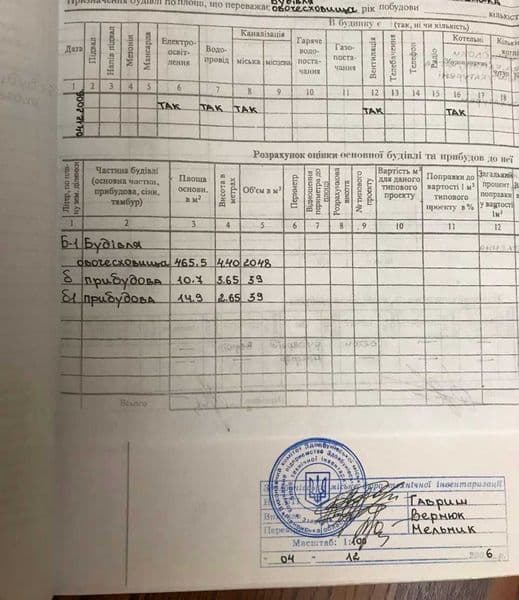 Призначення будівлі по площі, що переважає Будівля
овочесховища рік побудови
В будинку є (так, ні чи кількість)
Дата Підвал Напів підвал Мезонін Мансарда Електро-освіт-лення Водо-провід Каналізація міська місцева Гаряче водо-поста-чання Газо-поста-чання Вентиляція Телебачення Телефон Радіо Котельні
1 2 3 4 5 6 7 8 9 10 11 12 13 14 15 16 17 18
04.12.2006 ТАК ТАК ТАК ТАК ТАК
Розрахунок оцінки основної будівлі та прибудов до неї
Літер, по пла-ну зем. ділянки Частина будівлі (основна частка, прибудова, сіни, тамбур) Площа основн. в м² Висота в метрах Об'єм в м³ Периметр Відношення периметра до площі Розрахункова висота № типового проекту Вартість м³ для даного типового проекту Поправки до вартості 1 м³ типового проекту в % Загальний процент поправки у вартості 1м³
1 2 3 4 5 6 7 8 9 10 11 12
Б-1 Будівля
овочесховища 465.5 4.40 2048
б прибудова 10.7 3.65 39
б1 прибудова 14.9 2.65 39
Всього
технічної інвентаризації
Гавриш
Вернюк
Мельник
Масштаб: 1:100
04 12 2006 р.